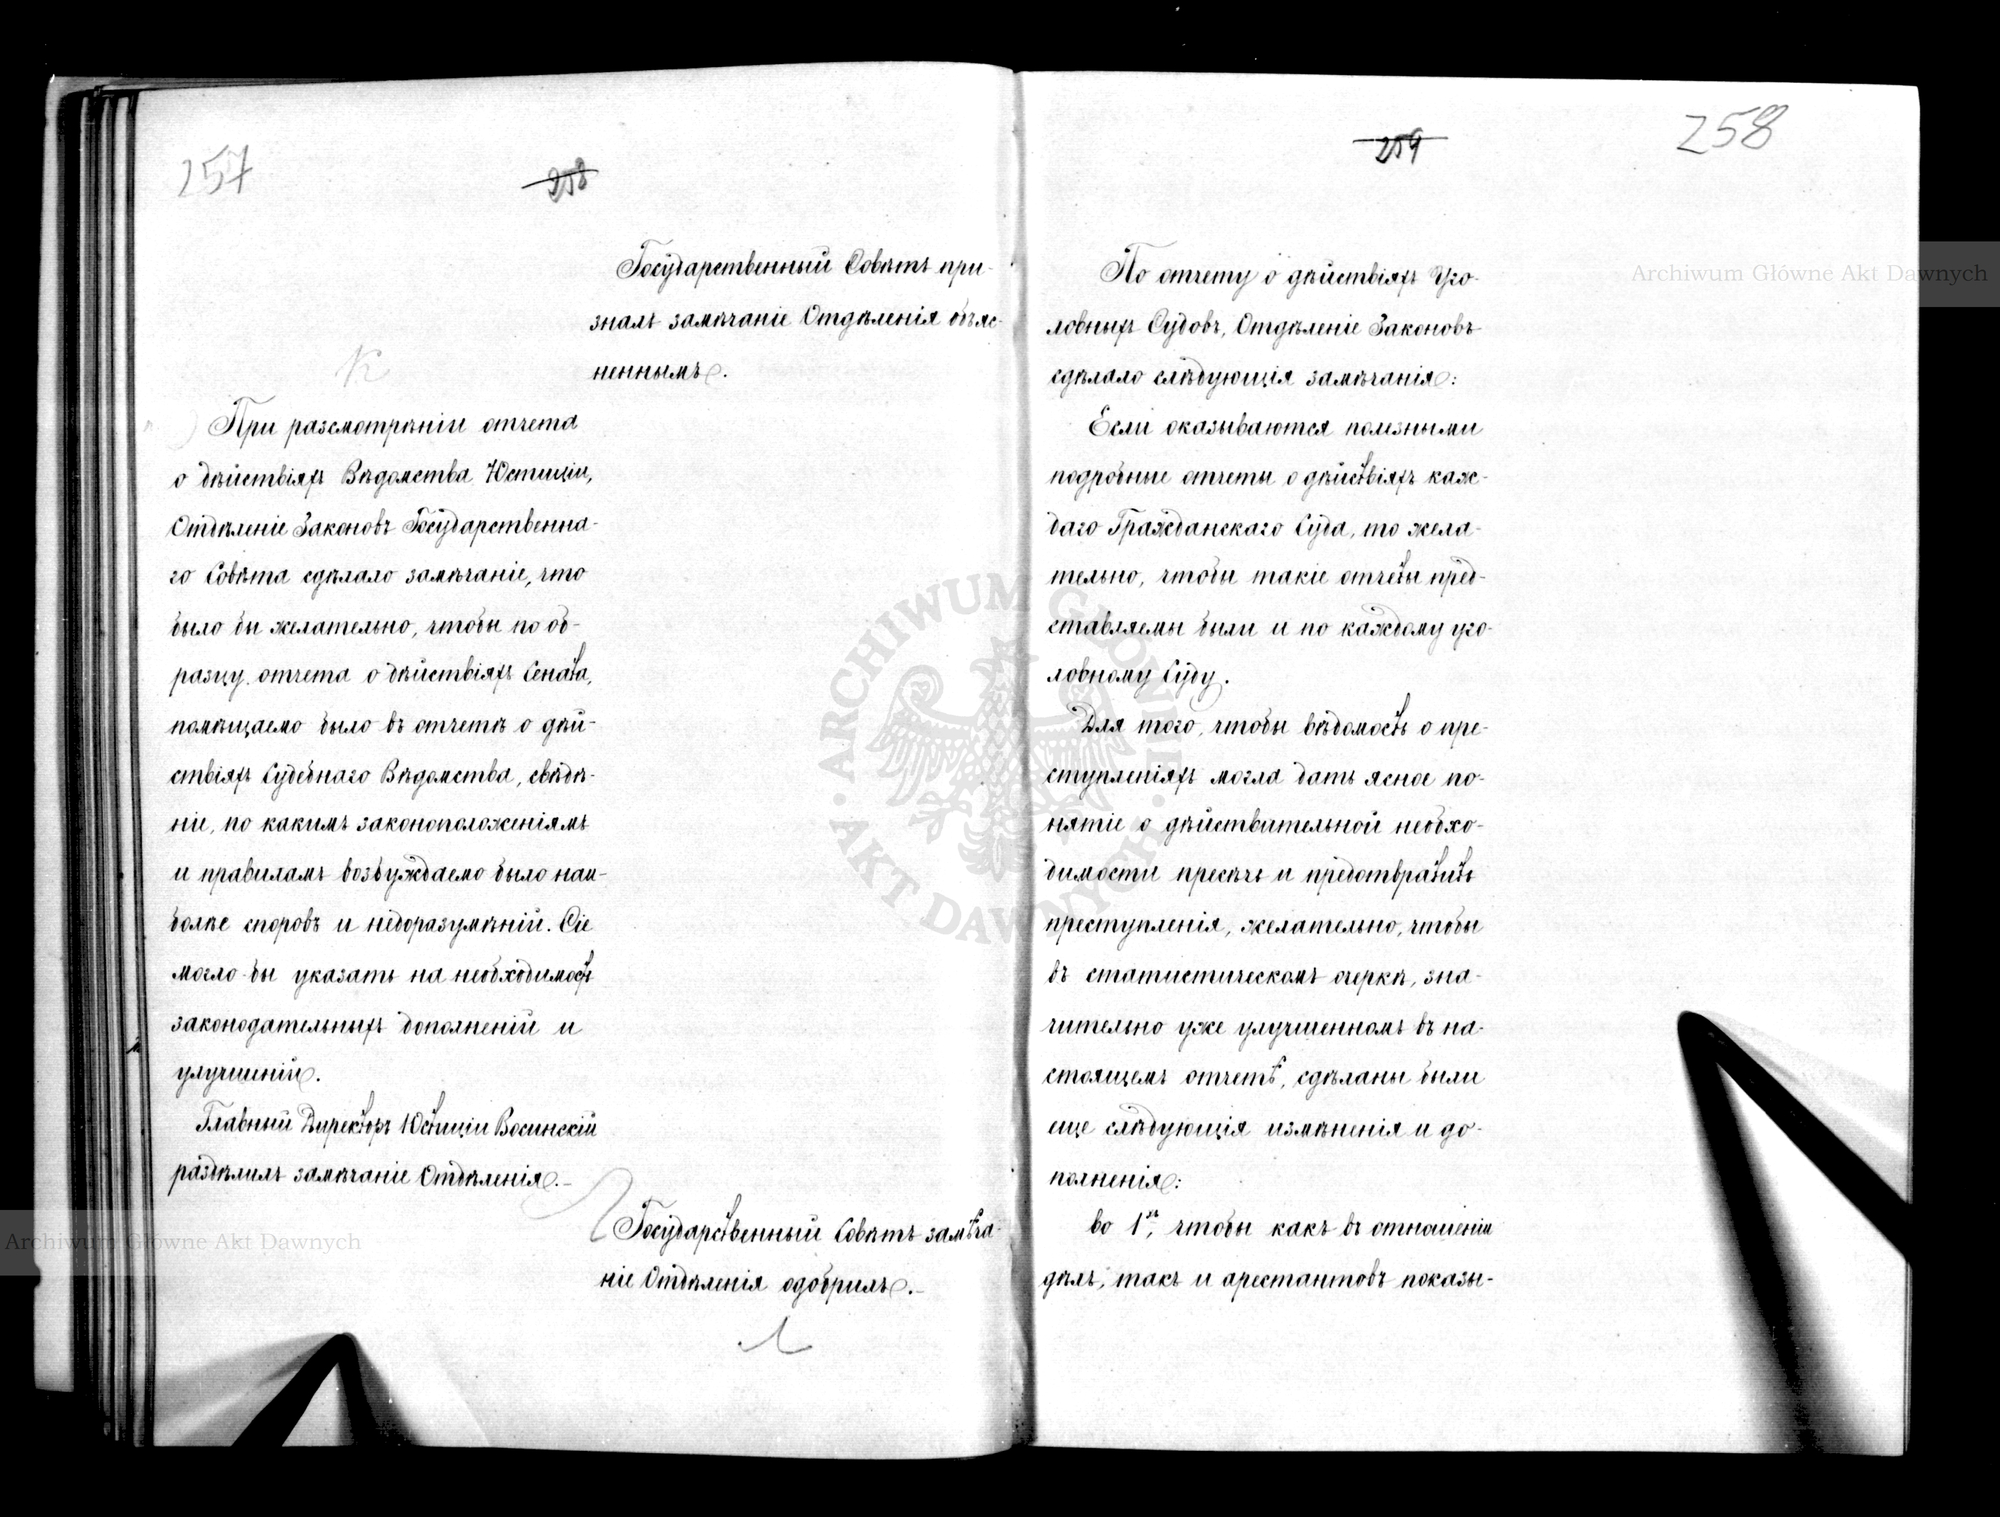 257
258
Государственный Совѣтъ при-
зналъ замѣчаніе Отдѣленія объяс-
неннымъ.
К
При разсмотрѣніи отчета
о дѣйствіяхъ Вѣдомства Юстиціи,
Отдѣленіе Законовъ Государственна-
го Совѣта сдѣлало замѣчаніе, что
было бы желательно, чтобы по об-
разцу отчета о дѣйствіяхъ Сената,
помѣщаемо было въ отчетѣ о дѣй-
ствіяхъ Судебнаго Вѣдомства, свѣдѣ-
ніе, по какимъ законоположеніямъ
и правиламъ возбуждаемо было наи-
болѣе споровъ и недоразумѣній. Сіе
могло бы указать на необходимость
законодательныхъ дополненій и
улучшеній.
Главный Директоръ Юстиціи Восинскій
раздѣлилъ замѣчаніе Отдѣленія.
Государственный Совѣтъ замѣча-
ніе Отдѣленія одобрилъ.
259
258
По отчету о дѣйствіяхъ Уго-
ловныхъ Судовъ, Отдѣленіе Законовъ
сдѣлало слѣдующія замѣчанія:
Если оказываются полезными
подробные отчеты о дѣйствіяхъ каж-
даго Гражданскаго Суда, то жела-
тельно, чтобы такіе отчеты пред-
ставляемы были и по каждому уго-
ловному Суду.
Для того, чтобы вѣдомость о пре-
ступленіяхъ могла дать ясное по-
нятіе о дѣйствительной необхо-
димости пресѣчь и предотвратить
преступленія, желательно, чтобы
въ статистическомъ очеркѣ, зна-
чительно уже улучшенномъ въ на-
стоящемъ отчетѣ, сдѣланы были
еще слѣдующія измѣненія и до-
полненія:
во 1хъ, чтобы какъ въ отношеніи
дѣлъ, такъ и арестантовъ показы-
Archiwum Główne Akt Dawnych
Archiwum Główne Akt Dawnych
ARCHIWUM GŁÓWNE · AKT DAWNYCH ·